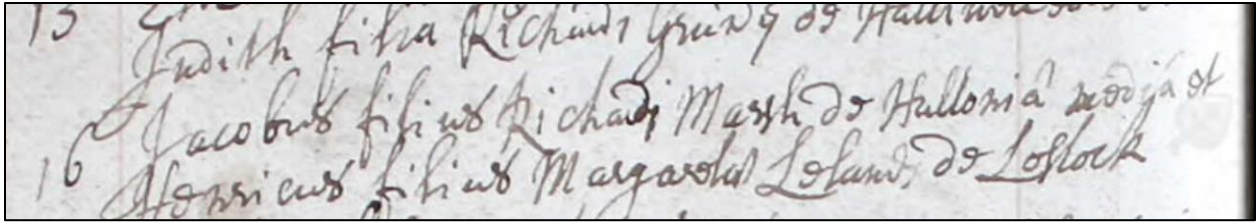 13
Judith filia Richardi Grundy de
Jacobus filius Richardi Marsh de Hultonia media et
16 Henricus filius Margaretae Leland de Loslock